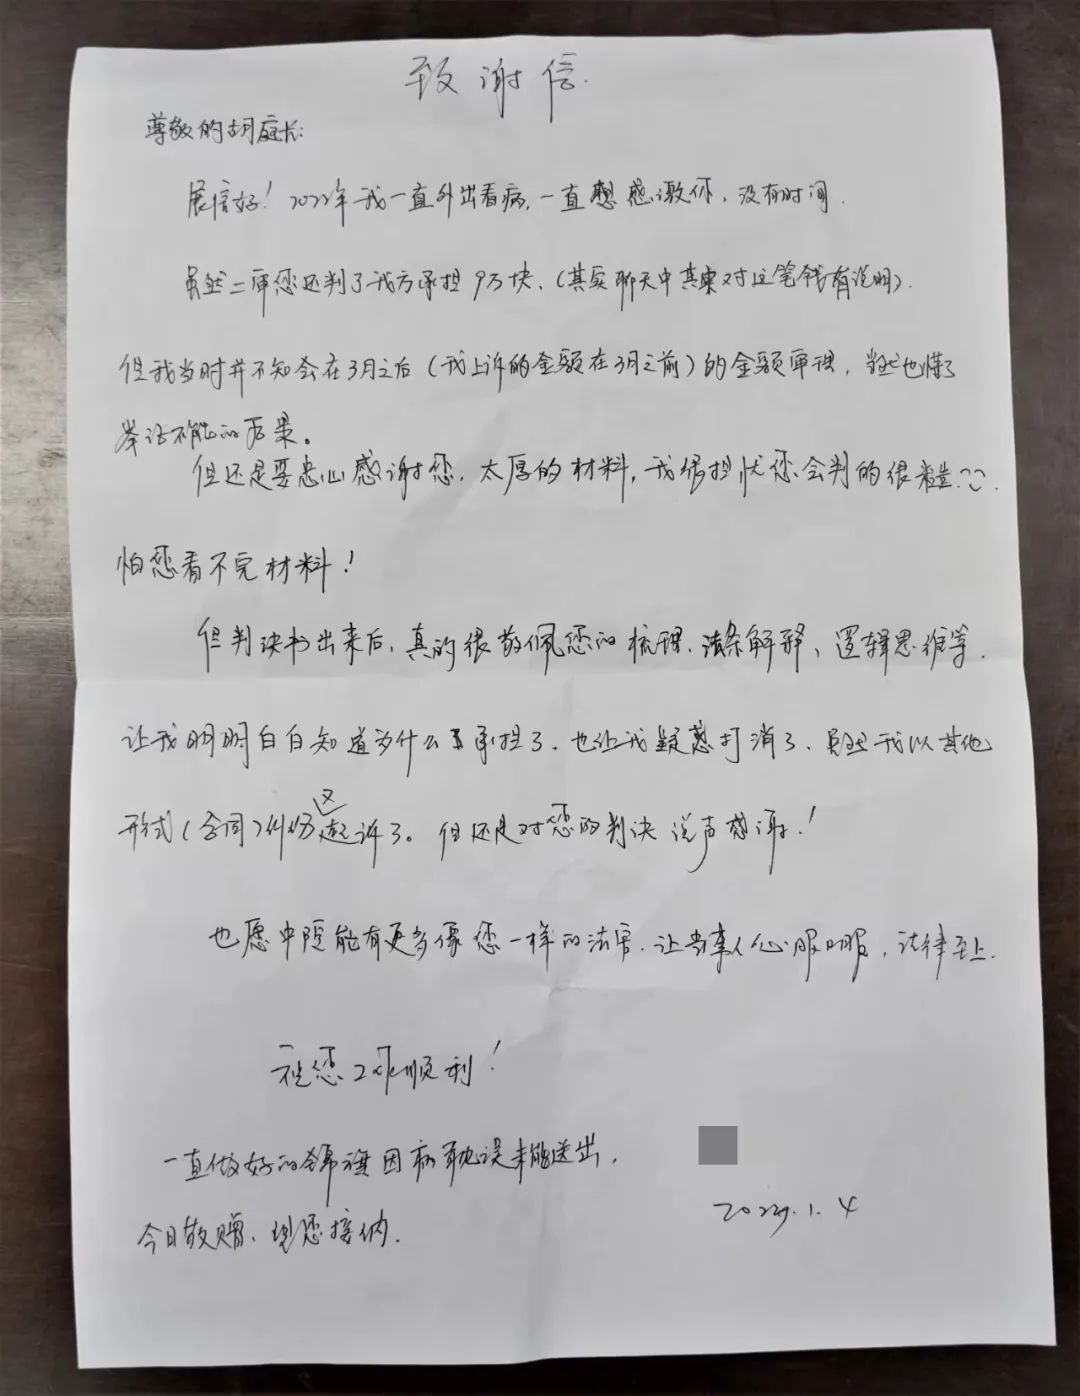 致谢信.
尊敬的胡庭长:
展信好！2022年我一直外出看病,一直想感激你,没有时间.
虽然二审您还判了我方承担9万块、(其实聊天中其实对这笔钱有说明).
但我当时并不知会在3月之后(我上诉的金额在3月之前)的金额审理,当然也懂了
举证不能的后果。
但还是要忠心感谢您,太厚的材料,我很担忧您会判的很糙
怕您看不完材料!
但判决书出来后,真的很敬佩您的梳理、法条解释、逻辑思维等.
让我明明白白知道为什么承担了.也让我疑惑打消了.虽然我以其他
形式(合同)又起诉了。但还是对您的判决说声感谢!
也愿中院能有更多像您一样的法官.让当事人心服口服,法律至上.
祝您工作顺利!
一直做好的锦旗因病耽误未能送出,
今日敬赠、望您接纳.
2023.1.4